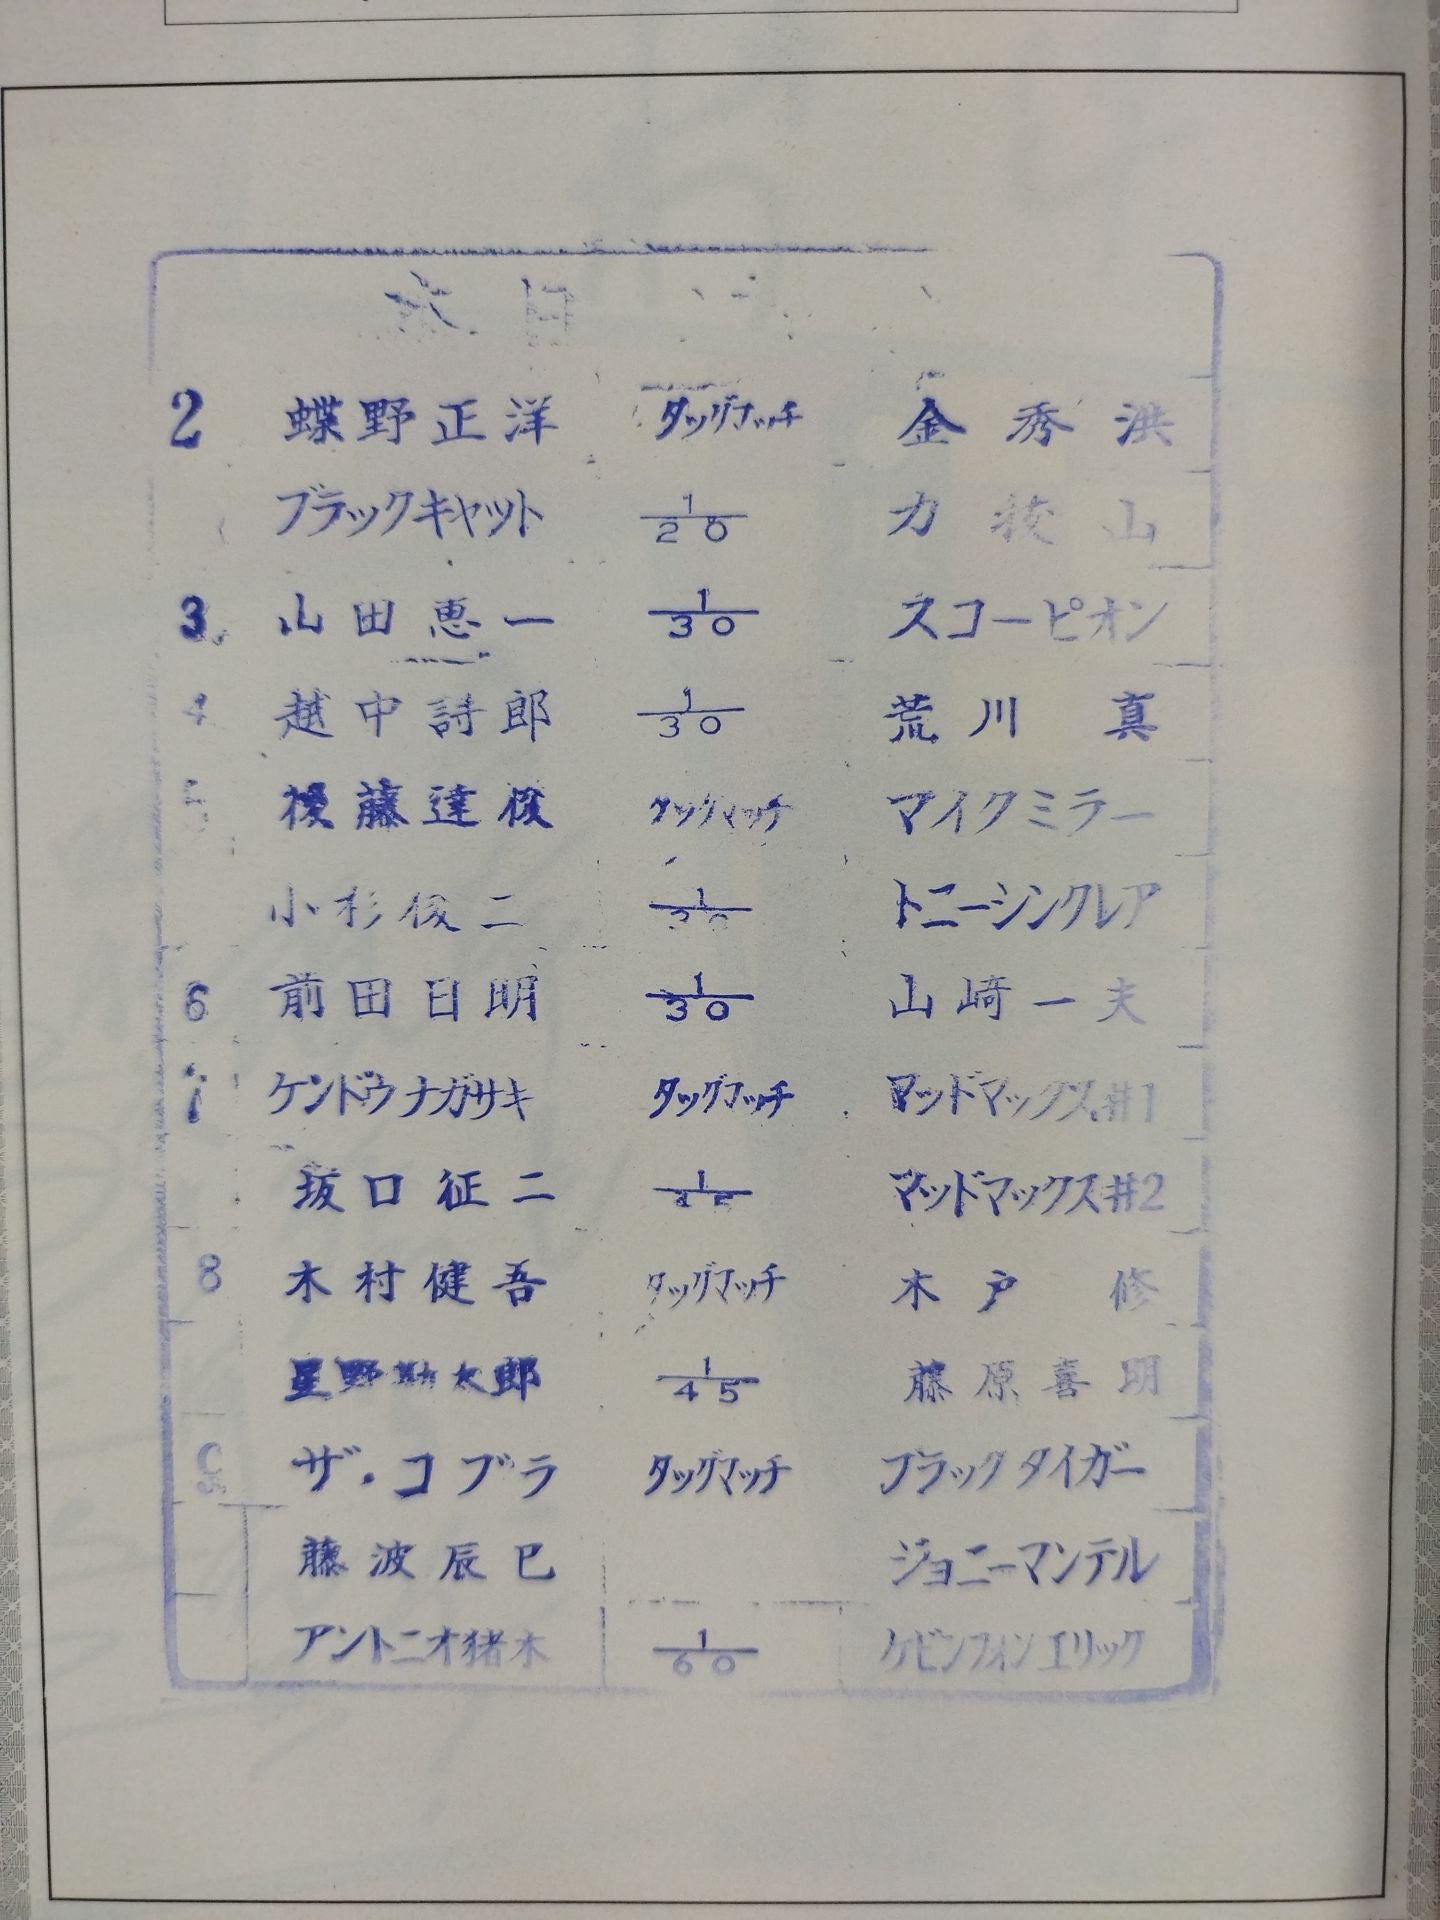 本日
2 蝶野正洋 タッグマッチ 金秀洪
ブラックキャット 1/20 力抜山
3 山田恵一 1/30 スコーピオン
4 越中詩郎 1/30 荒川真
5 後藤達俊 タッグマッチ マイクミラー
小杉俊二 1/30 トニーシンクレア
6 前田日明 1/30 山崎一夫
7 ケンドウナガサキ タッグマッチ マッドマックス#1
坂口征二 1/45 マッドマックス#2
8 木村健吾 タッグマッチ 木戸修
星野勘太郎 1/45 藤原喜明
9 ザ・コブラ タッグマッチ ブラックタイガー
藤波辰巳 ジョニーマンテル
アントニオ猪木 1/60 ケビンフォンエリック